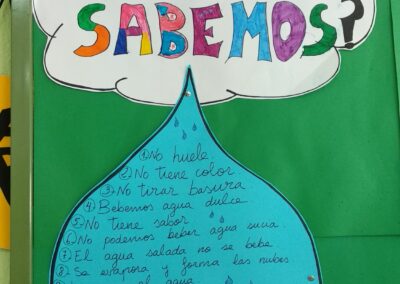 SABEMOS?
① No huele.
② No tiene color.
③ No tirar basura.
④ Bebemos agua dulce
⑤ No tiene sabor.
⑥ No podemos beber agua sucia.
⑦ El agua salada no se bebe
⑧ Se evapora y forma las nubes
el agua